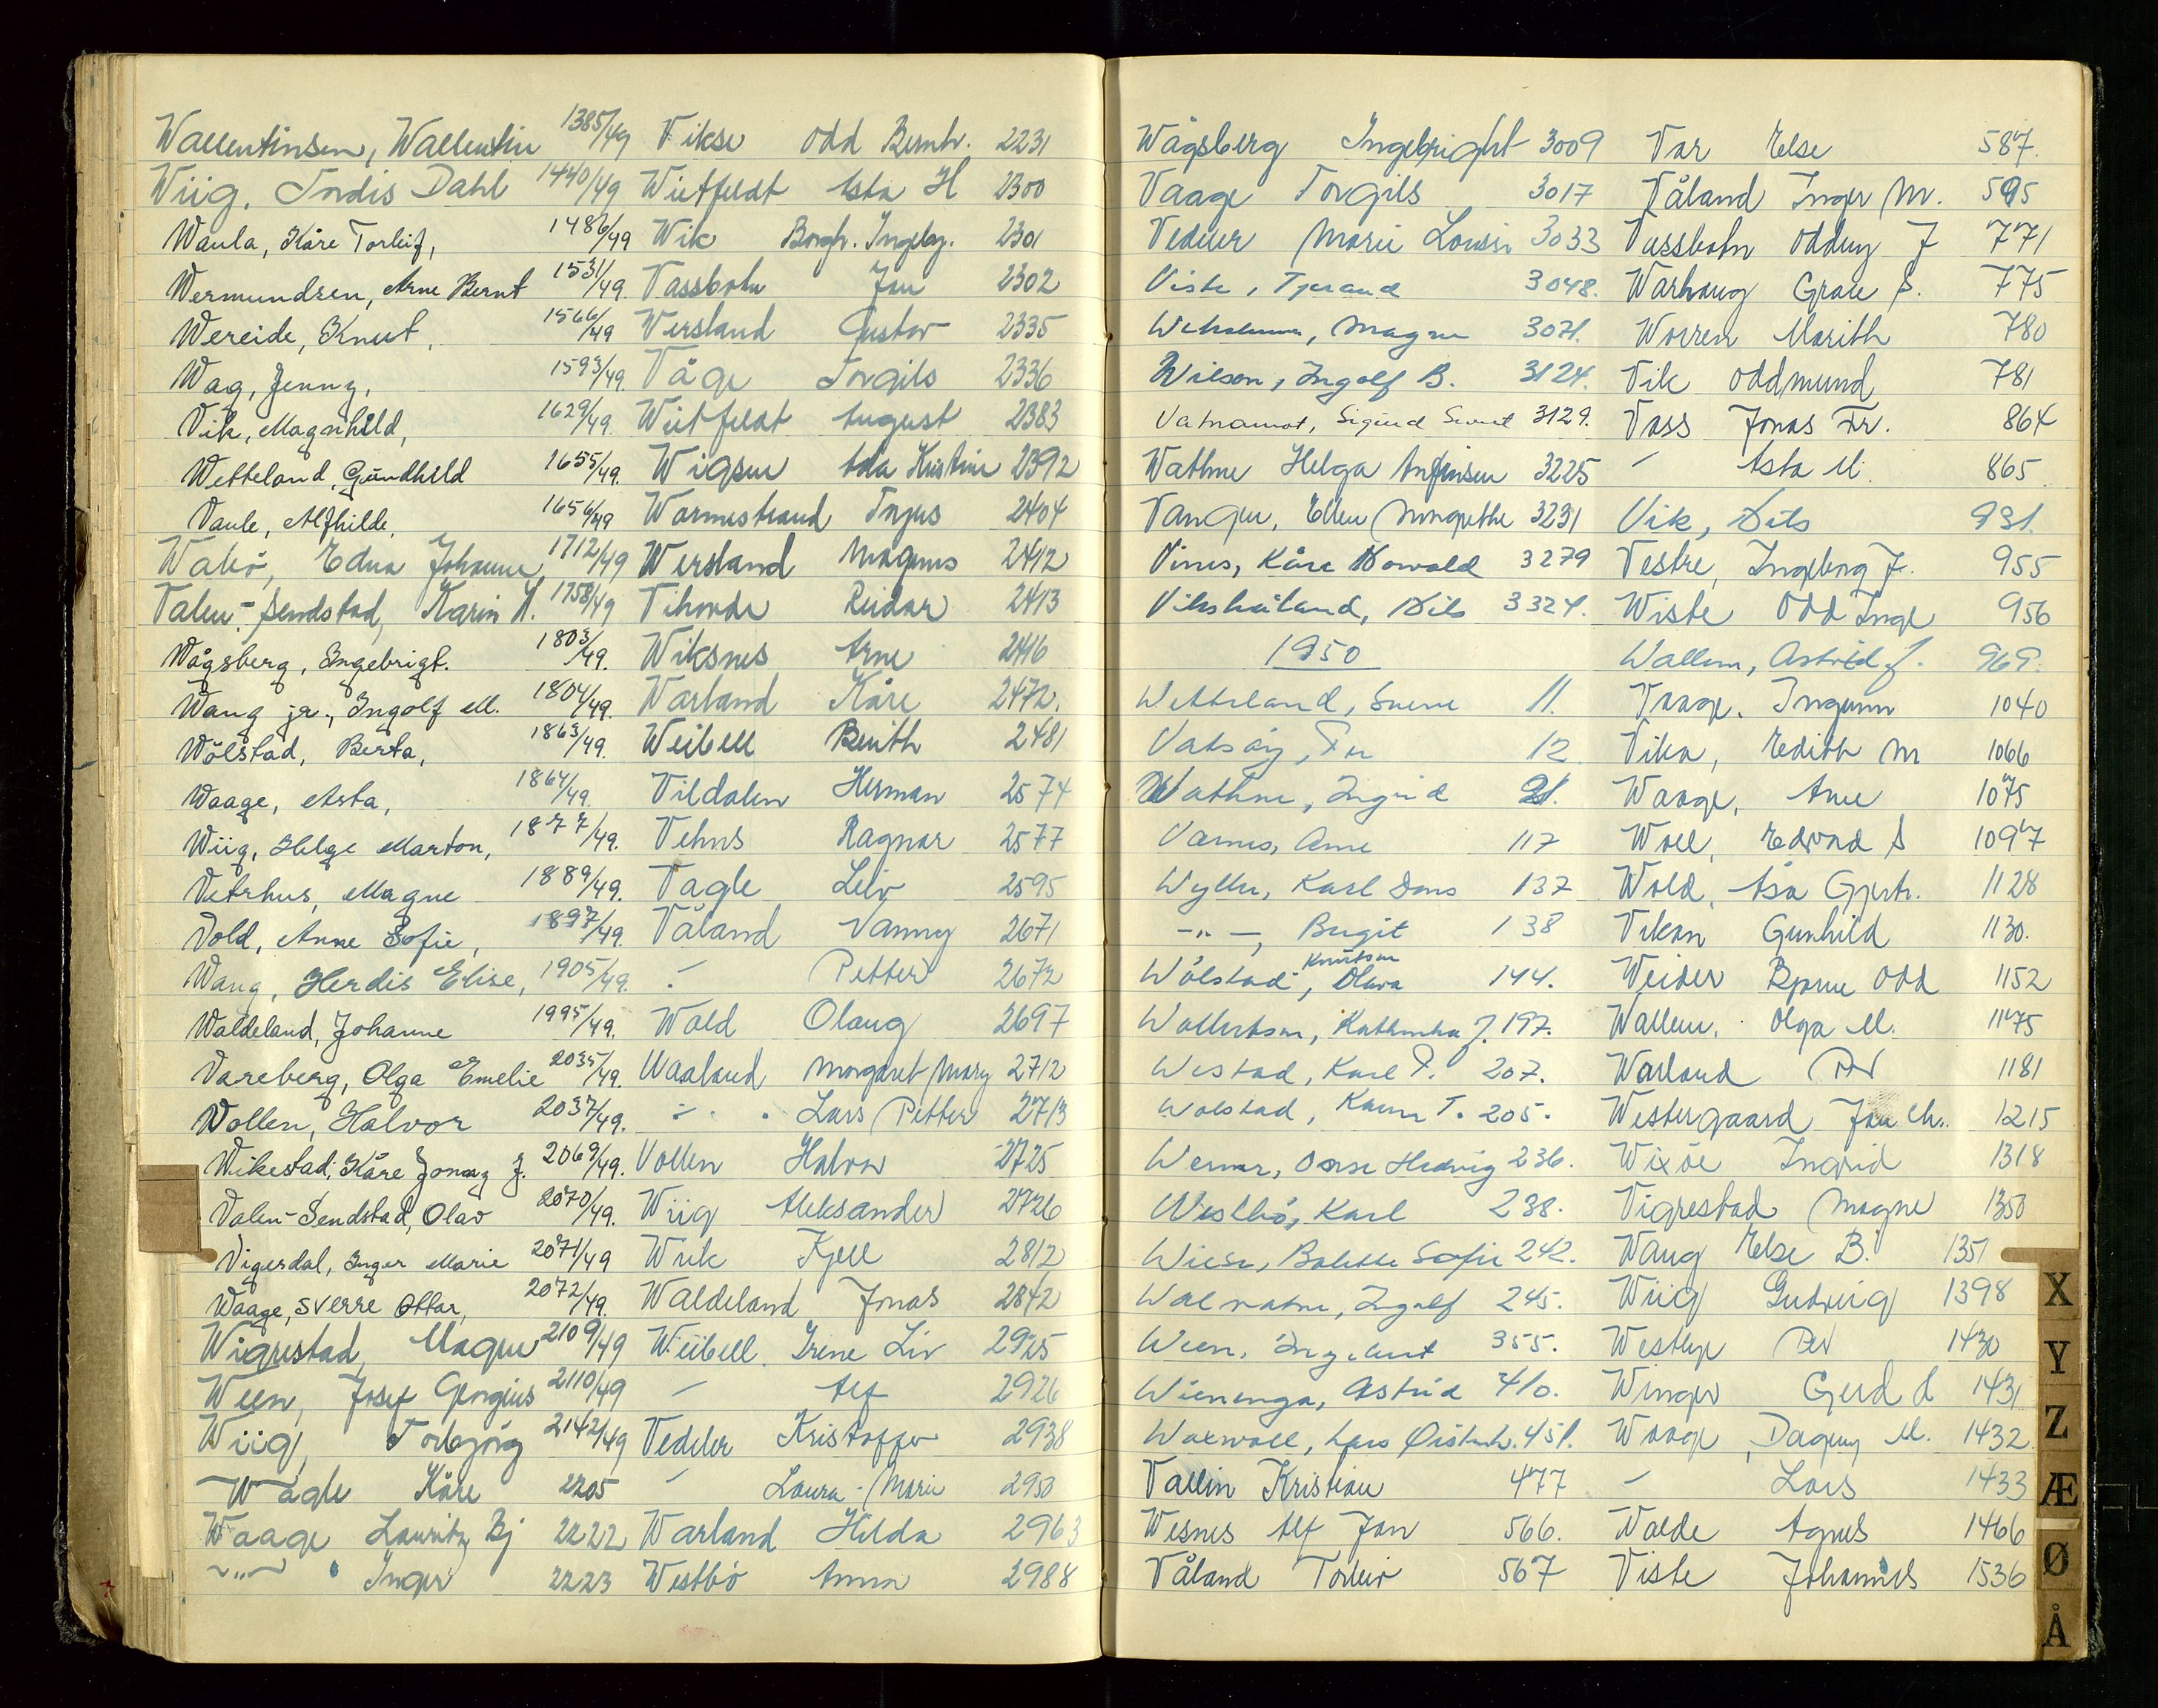 Wallentinsen, Wallentin 1385/49
Wiig, Tordis Dahl 1440/49
Waula, Kåre Torleif, 1486/49
Wermundsen, Arne Bernt 1531/49.
Wereide, Knut, 1566/49
Wag, Jenny, 1593/49.
Vik, Magnhild, 1629/49.
Wetteland, Gundhild 1655/49.
Vaule, Alfhilde, 1656/49
Walsö, Edna Johanne 1712/49
Valen-Sendstad, Karin H. 1758/49
Vågsberg, Ingebrigt. 1803/49.
Wang jr., Ingolf M. 1804/49.
Wölstad, Berta, 1863/49.
Waage, Asta, 1864/49.
Wiig, Helge Marton, 1877/49.
Vetrhus, Magne 1889/49.
Vold, Anne Sofie, 1897/49.
Wang, Herdis Elise, 1905/49.
Waldeland, Johanne 1995/49.
Vareberg, Olga Emelie 2035/49.
Wollen, Halvor 2037/49.
Wikestad, Kåre Jonny J. 2069/49.
Valen-Sendstad, Olav 2070/49.
Vigerdal, Inger Marie 2071/49
Waage, Sverre Ottar, 2072/49.
Wigrestad, Magne 2109/49
Ween, Josef Georgius 2110/49
Wiig, Torbjörg 2142/49
Wagle Kåre 2205
Waage Lauritz Bj 2222
-"- Inger 2223
Vikse Odd Bernh. 2231
Wietfeldt Asta H 2300
Wik Borgh. Ingebg. 2301
Vassbotn Jan 2302
Versland Gustav 2335
Våge Torgils 2336
Wietfeldt August 2383
Wigsen Ada Kristine 2392
Warmestrand Trygus 2404
Wersland Magnus 2412
Tihovde Reidar 2413
Wiksnes Arne 2416
Warland Kåre 2472.
Weibell Berith 2481
Vildalen Herman 2574
Vehus Ragnar 2577
Vagle Leiv 2595
Våland Vanny 2671
- Petter 2672
Wold Olaug 2697
Waaland Margaret Mary 2712
- Lars Petter 2713
Vollen Halvor 2725
Wiig Aleksander 2726
Wiik Kjell 2812
Waldeland Jonas 2842
Weibell Irene Liv 2925
- Alf 2926
Vedeler Kristoffer 2938
- Laura Marie 2950
Warland Hilda 2963
Westbö Anna 2988
Wågsberg Ingebright 3009
Vaage Torgils 3017
Vedeler Marie Louise 3033
Viste, Tjerand 3048.
Magne 3071.
Wilson, Ingolf B. 3124.
Vatnamot, Sigurd 3129.
Wathne Helga Anfinsen 3225
Vanger, Ellen Margrethe 3231
Vines, Kåre Howald 3279
Vikshåland, Nils 3321.
1950
Wetteland, Sverre 11.
Vatsöy, Fru 12
Wathne, Ingrid 21.
Varnes, Arne 117
Wyller, Karl Dons 137
-"-, Birgit 138
Knutsen
Wölstad, Olava 144.
Wallertsen, Kathinka J. 197.
Westad, Karl P. 207.
Wolstad, Karen T. 205.
Werner, Hedvig 236.
Westbö, Karl 238.
Wiese, Bolette Sofie 242.
Walvatne, Ingolf 245.
Ween, Ingebret 355.
Wieninga, Astrid 410.
Waxwall, Lars 451.
Vallin Kristian 477
Wesnes Alf Jan 566.
Våland Torleiv 567
Var Else 587.
Våland Inger M. 595
Vassbotn Oddny J 771
Warhaug Grace S. 775
Worren Marith 780
Vik Oddmund 781
Vass Jonas Fr. 864
- Asta M. 865
Vik, Nils 931.
Vestre, Ingeborg J. 955
Wiste Odd Inge 956
Wallem, Astrid J. 969.
Vaage, Ingunn 1040
Vika, Edith M 1066
Waage, Ane 1075
Woll, Edvard S 1097
Wold, Åsa Gjertr. 1128
Vikan Gunhild 1130.
Weider Bjarne Odd 1152
Wallem, Olga M. 1175
Warland Per 1181
Westergaard Jan Ch. 1215
Wixöe Ingrid 1318
Vigrestad Magne 1350
Wang Else B. 1351
Wiig Gudveig 1398
Westbye Per 1430
Winger Gerd L 1431
Waage, Dagny M. 1432
- Lars 1433
Valde Agnes 1466
Viste Johannes 1536
X
Y
Z
Æ
Ø
Å